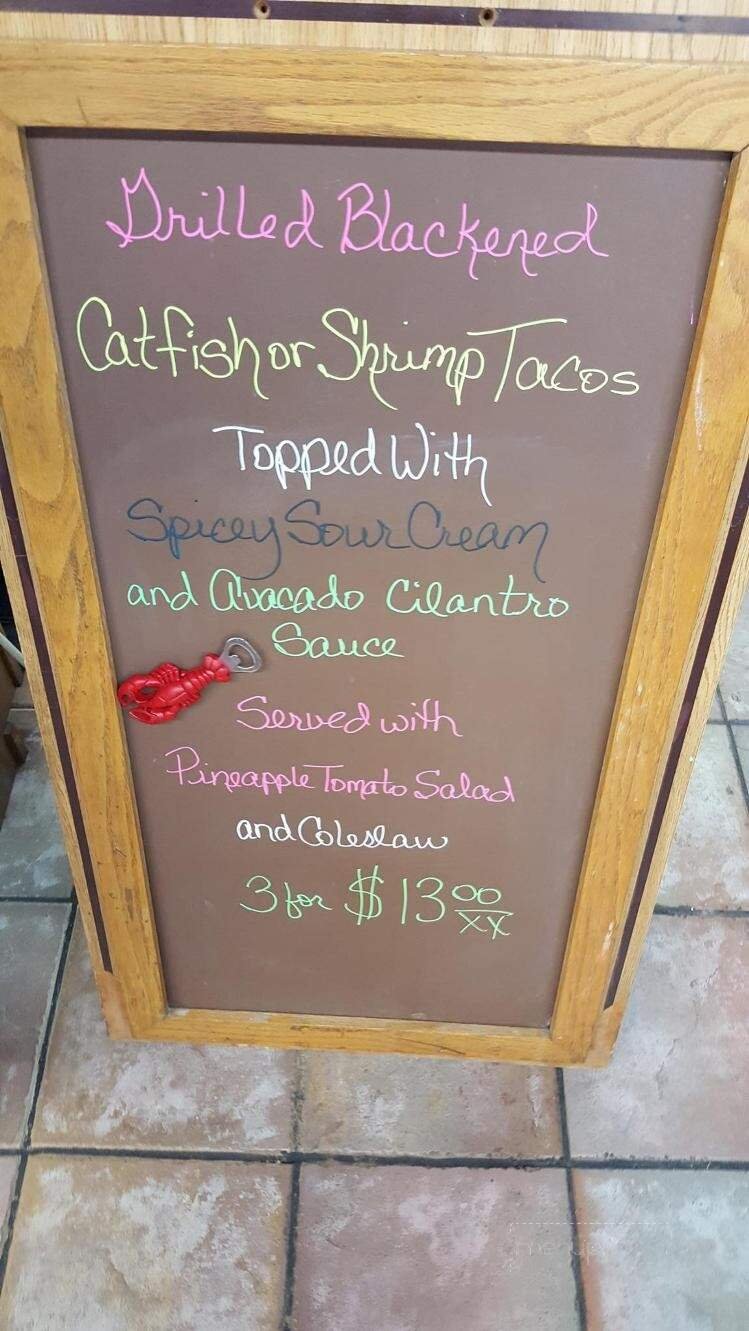 Grilled Blackened
Catfish or Shrimp Tacos
Topped With
Spicey Sour Cream
and Avacado Cilantro
Sauce
Served with
Pineapple Tomato Salad
and Coleslaw
3 for $13 00/xx